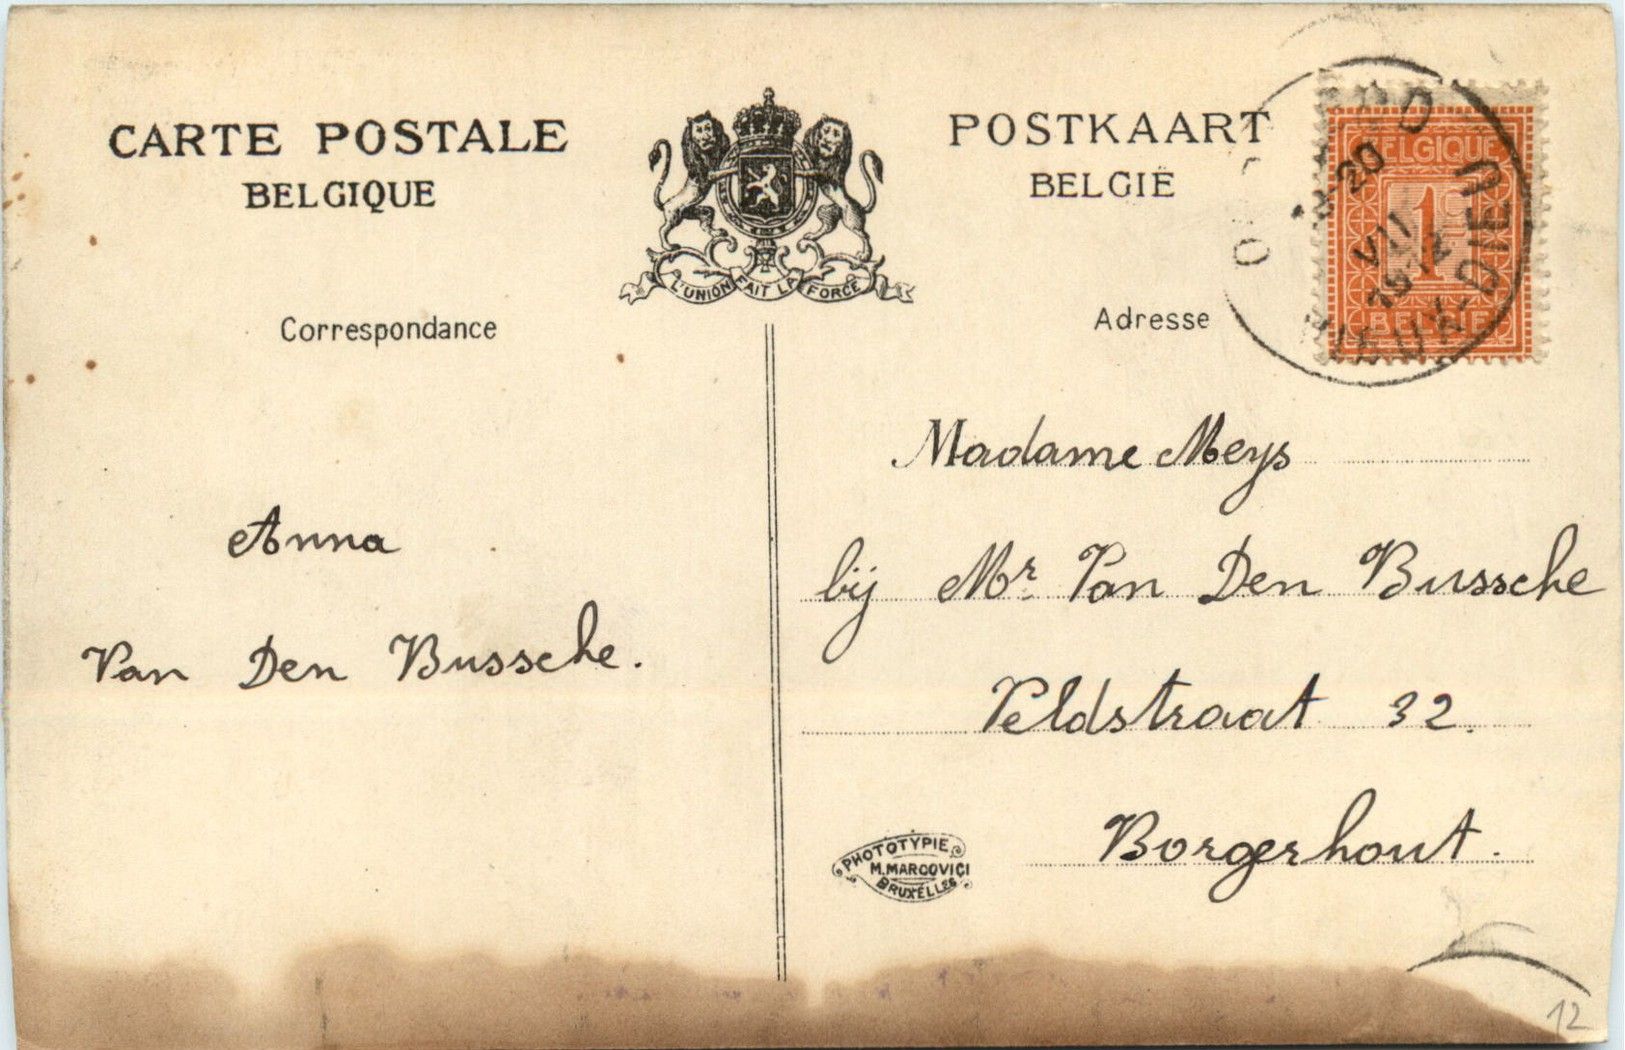 CARTE POSTALE
BELGIQUE
L'UNION FAIT LA FORCE
POSTKAART
BELGIË
BELGIQUE
1
BELGIË
20
VII
VIEUX-DIEU
Correspondance
Adresse
Anna
Van Den Bussche.
Madame Meys
bij Mr. Van Den Bussche
Veldstraat 32.
Borgerhout.
PHOTOTYPIE
M. MARCOVICI
BRUXELLES
12